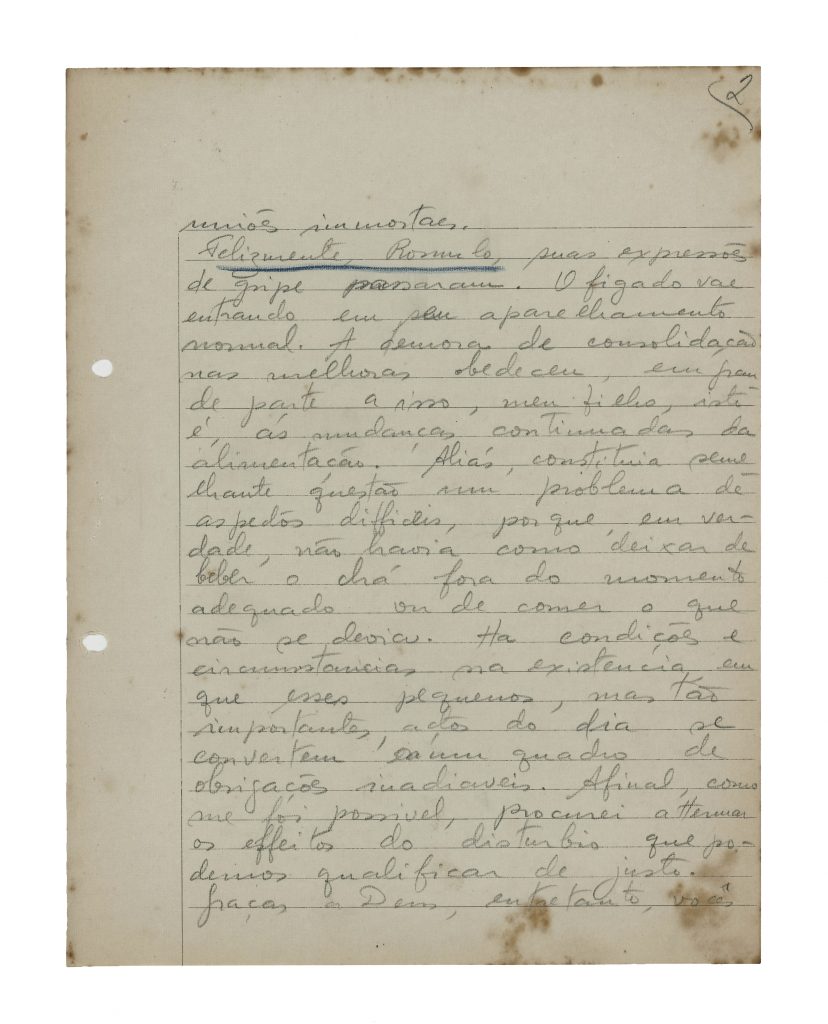 2
uniões immortaes.
Felizmente, Romulo, suas expressões
de gripe passaram. O figado vae
entrando em seu aparelhamento
normal. A demora de consolidação
nas melhoras obedeceu, em gran
de parte a isso, meu filho, isto
é, ás mudanças continuadas da
alimentação. Aliás, constituia seme
lhante questão um problema de
aspectos difficeis, porque, em ver-
dade, não havia como deixar de
beber o chá fora do momento
adequado ou de comer o que
não se devia. Ha condições e
circumstancias na existencia, em
que esses pequenos, mas tão
importantes, actos do dia se
convertem num quadro de
obrigações inadiaveis. Afinal, como
me foi possivel, procurei attenuar
os effeitos do disturbio que po-
demos qualificar de justo.
Graças a Deus, entretanto, vocês